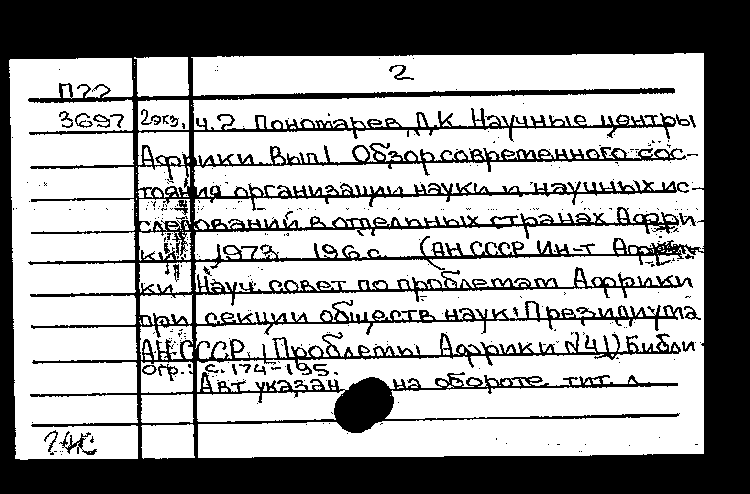 2
П22
3697 2экз. ч.2. Пономарев Д.К. Научные центры
Африки. Вып.1. Обзор современного сос-
тояния организации науки и научных ис-
следований в отдельных странах Афри-
ки. 1973. 196 с. (АН СССР. Ин-т Африки
ки. Науч. совет по проблемам Африки
при секции обществ. наук Президиума
АН СССР. (Проблемы Африки №41) Библи-
огр.: с. 174-195.
Авт. указан на обороте тит. л.